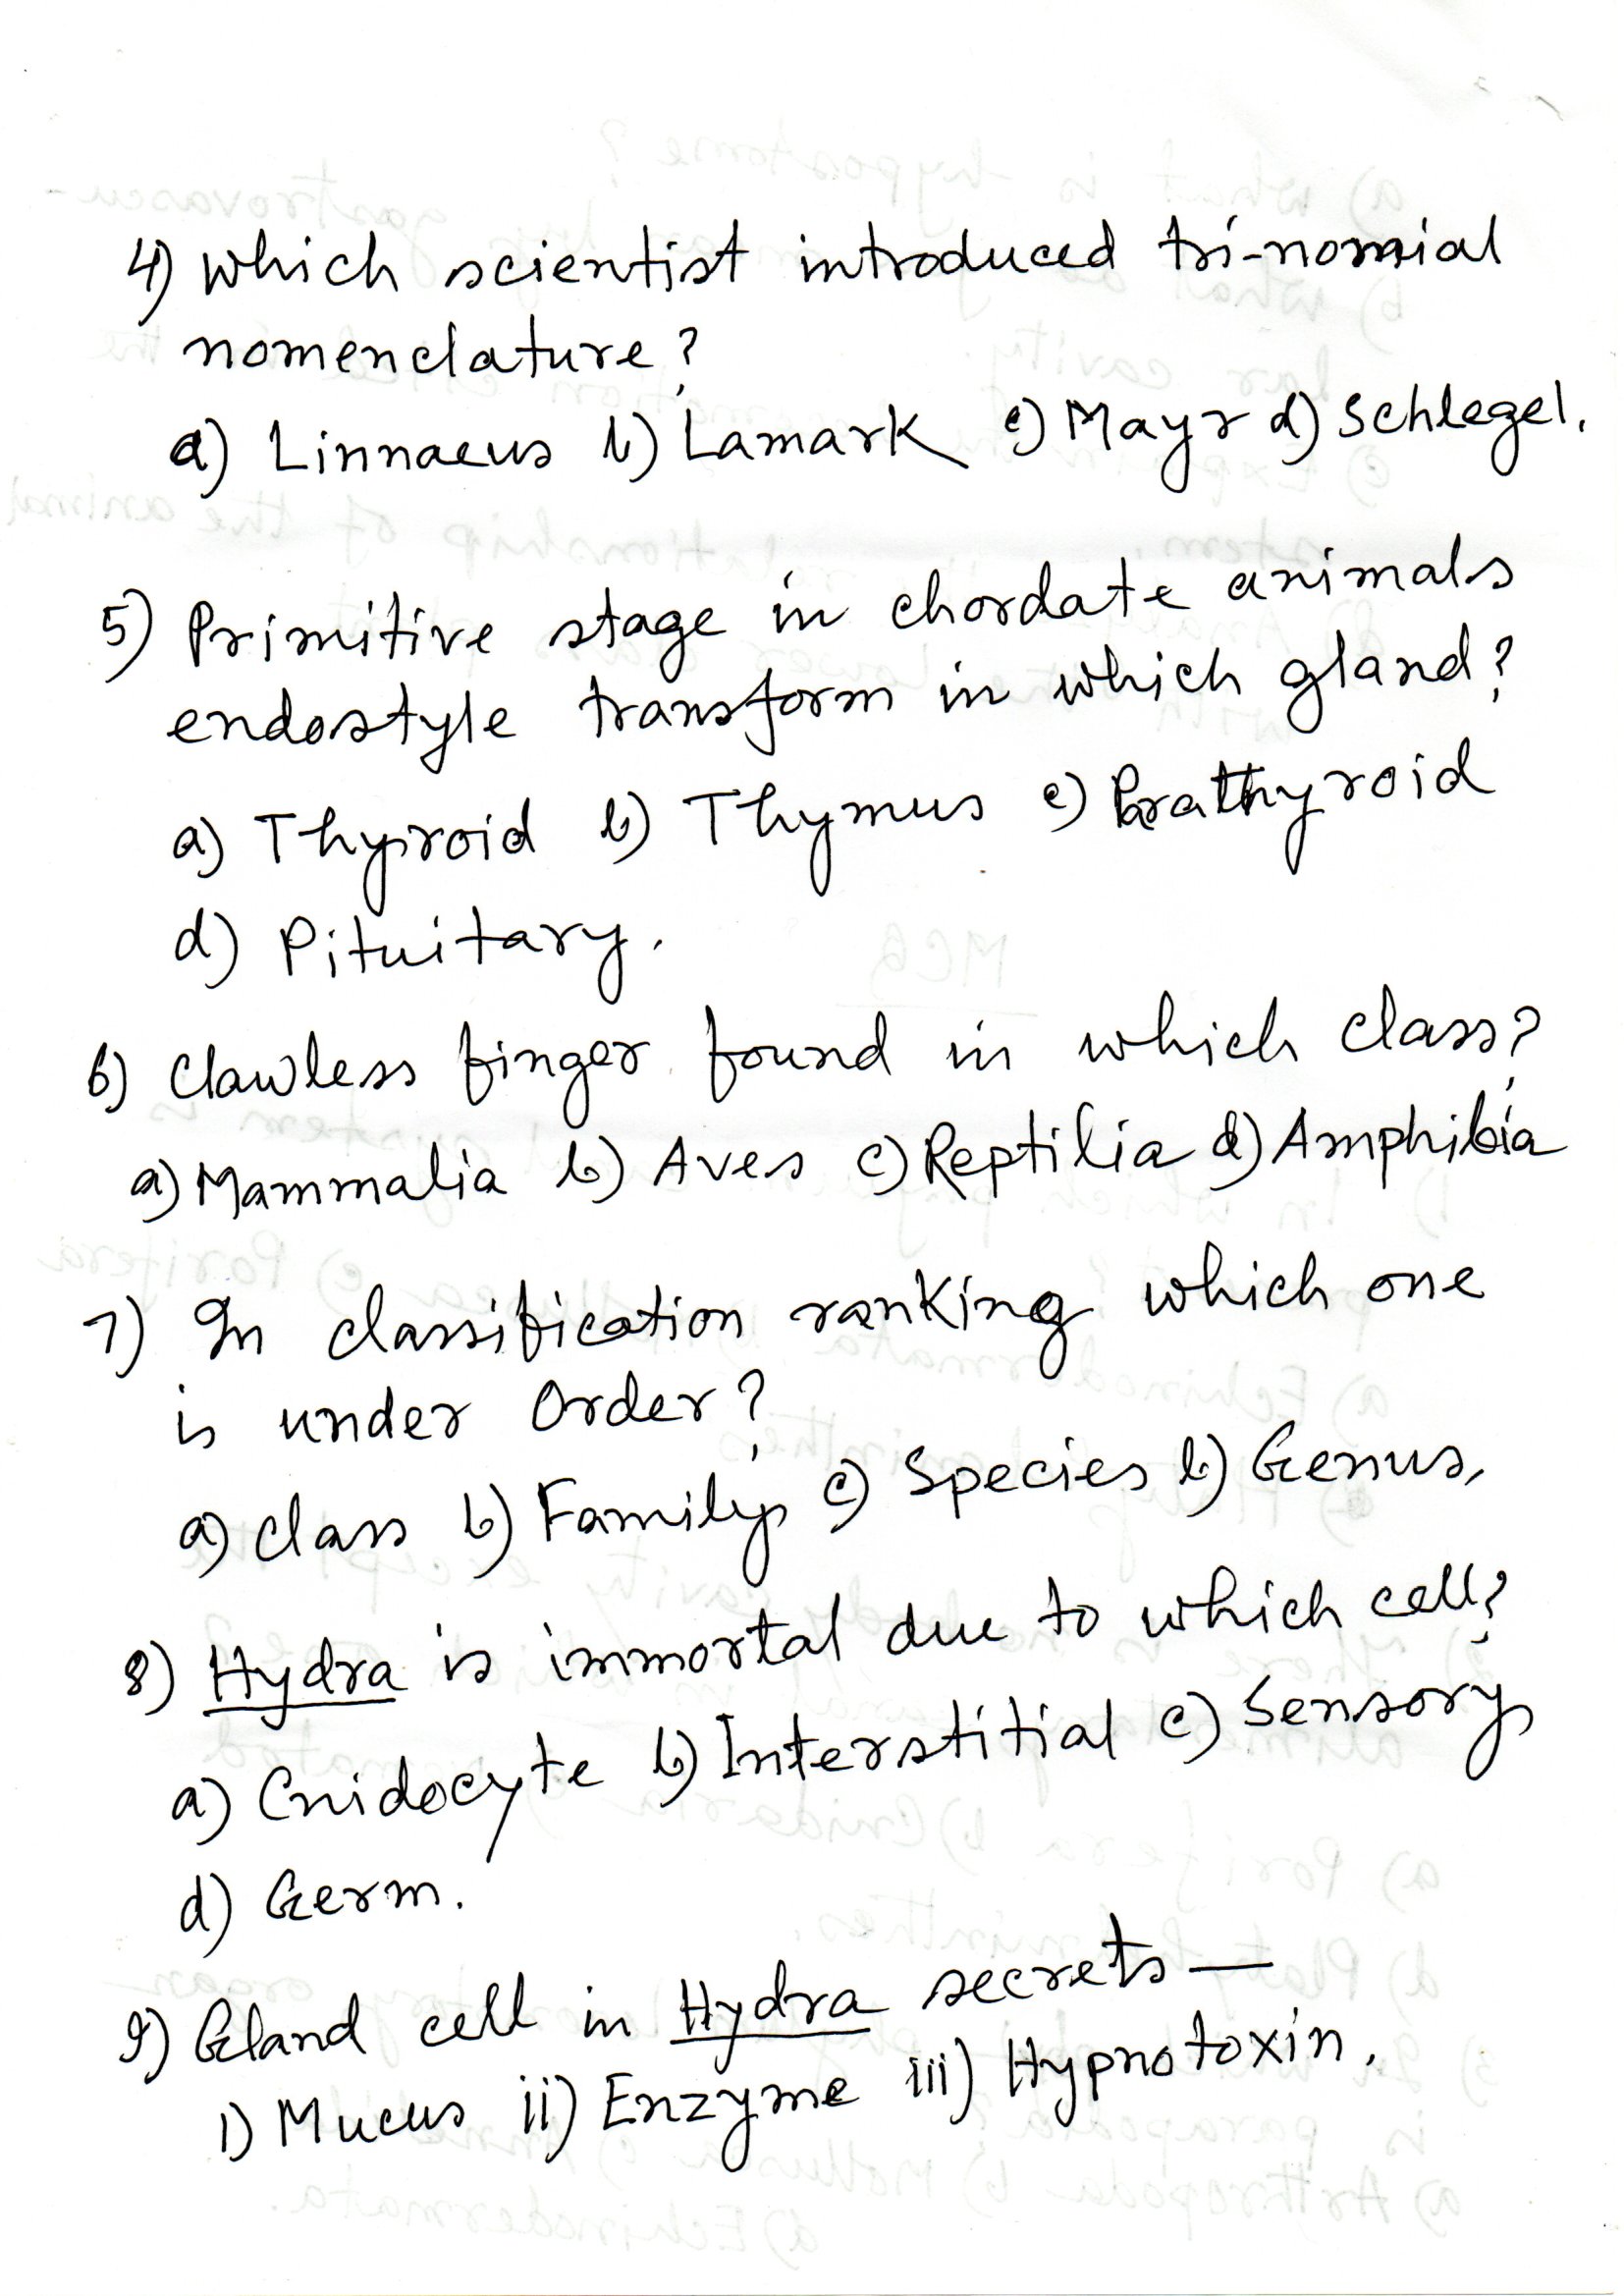 4) Which scientist introduced tri-nomial
nomenclature?
a) Linnaeus b) Lamark c) Mayr d) Schlegel.
5) Primitive stage in chordate animals
endostyle transform in which gland?
a) Thyroid b) Thymus c) Parathyroid
d) Pituitary.
6) Clawless finger found in which class?
a) Mammalia b) Aves c) Reptilia d) Amphibia
7) In classification ranking which one
is under Order?
a) Class b) Family c) Species b) Genus,
8) Hydra is immortal due to which cell?
a) Cnidocyte b) Interstitial c) Sensory
d) Germ.
9) Gland cell in Hydra secrets —
i) Mucus ii) Enzyme iii) Hypnotoxin.